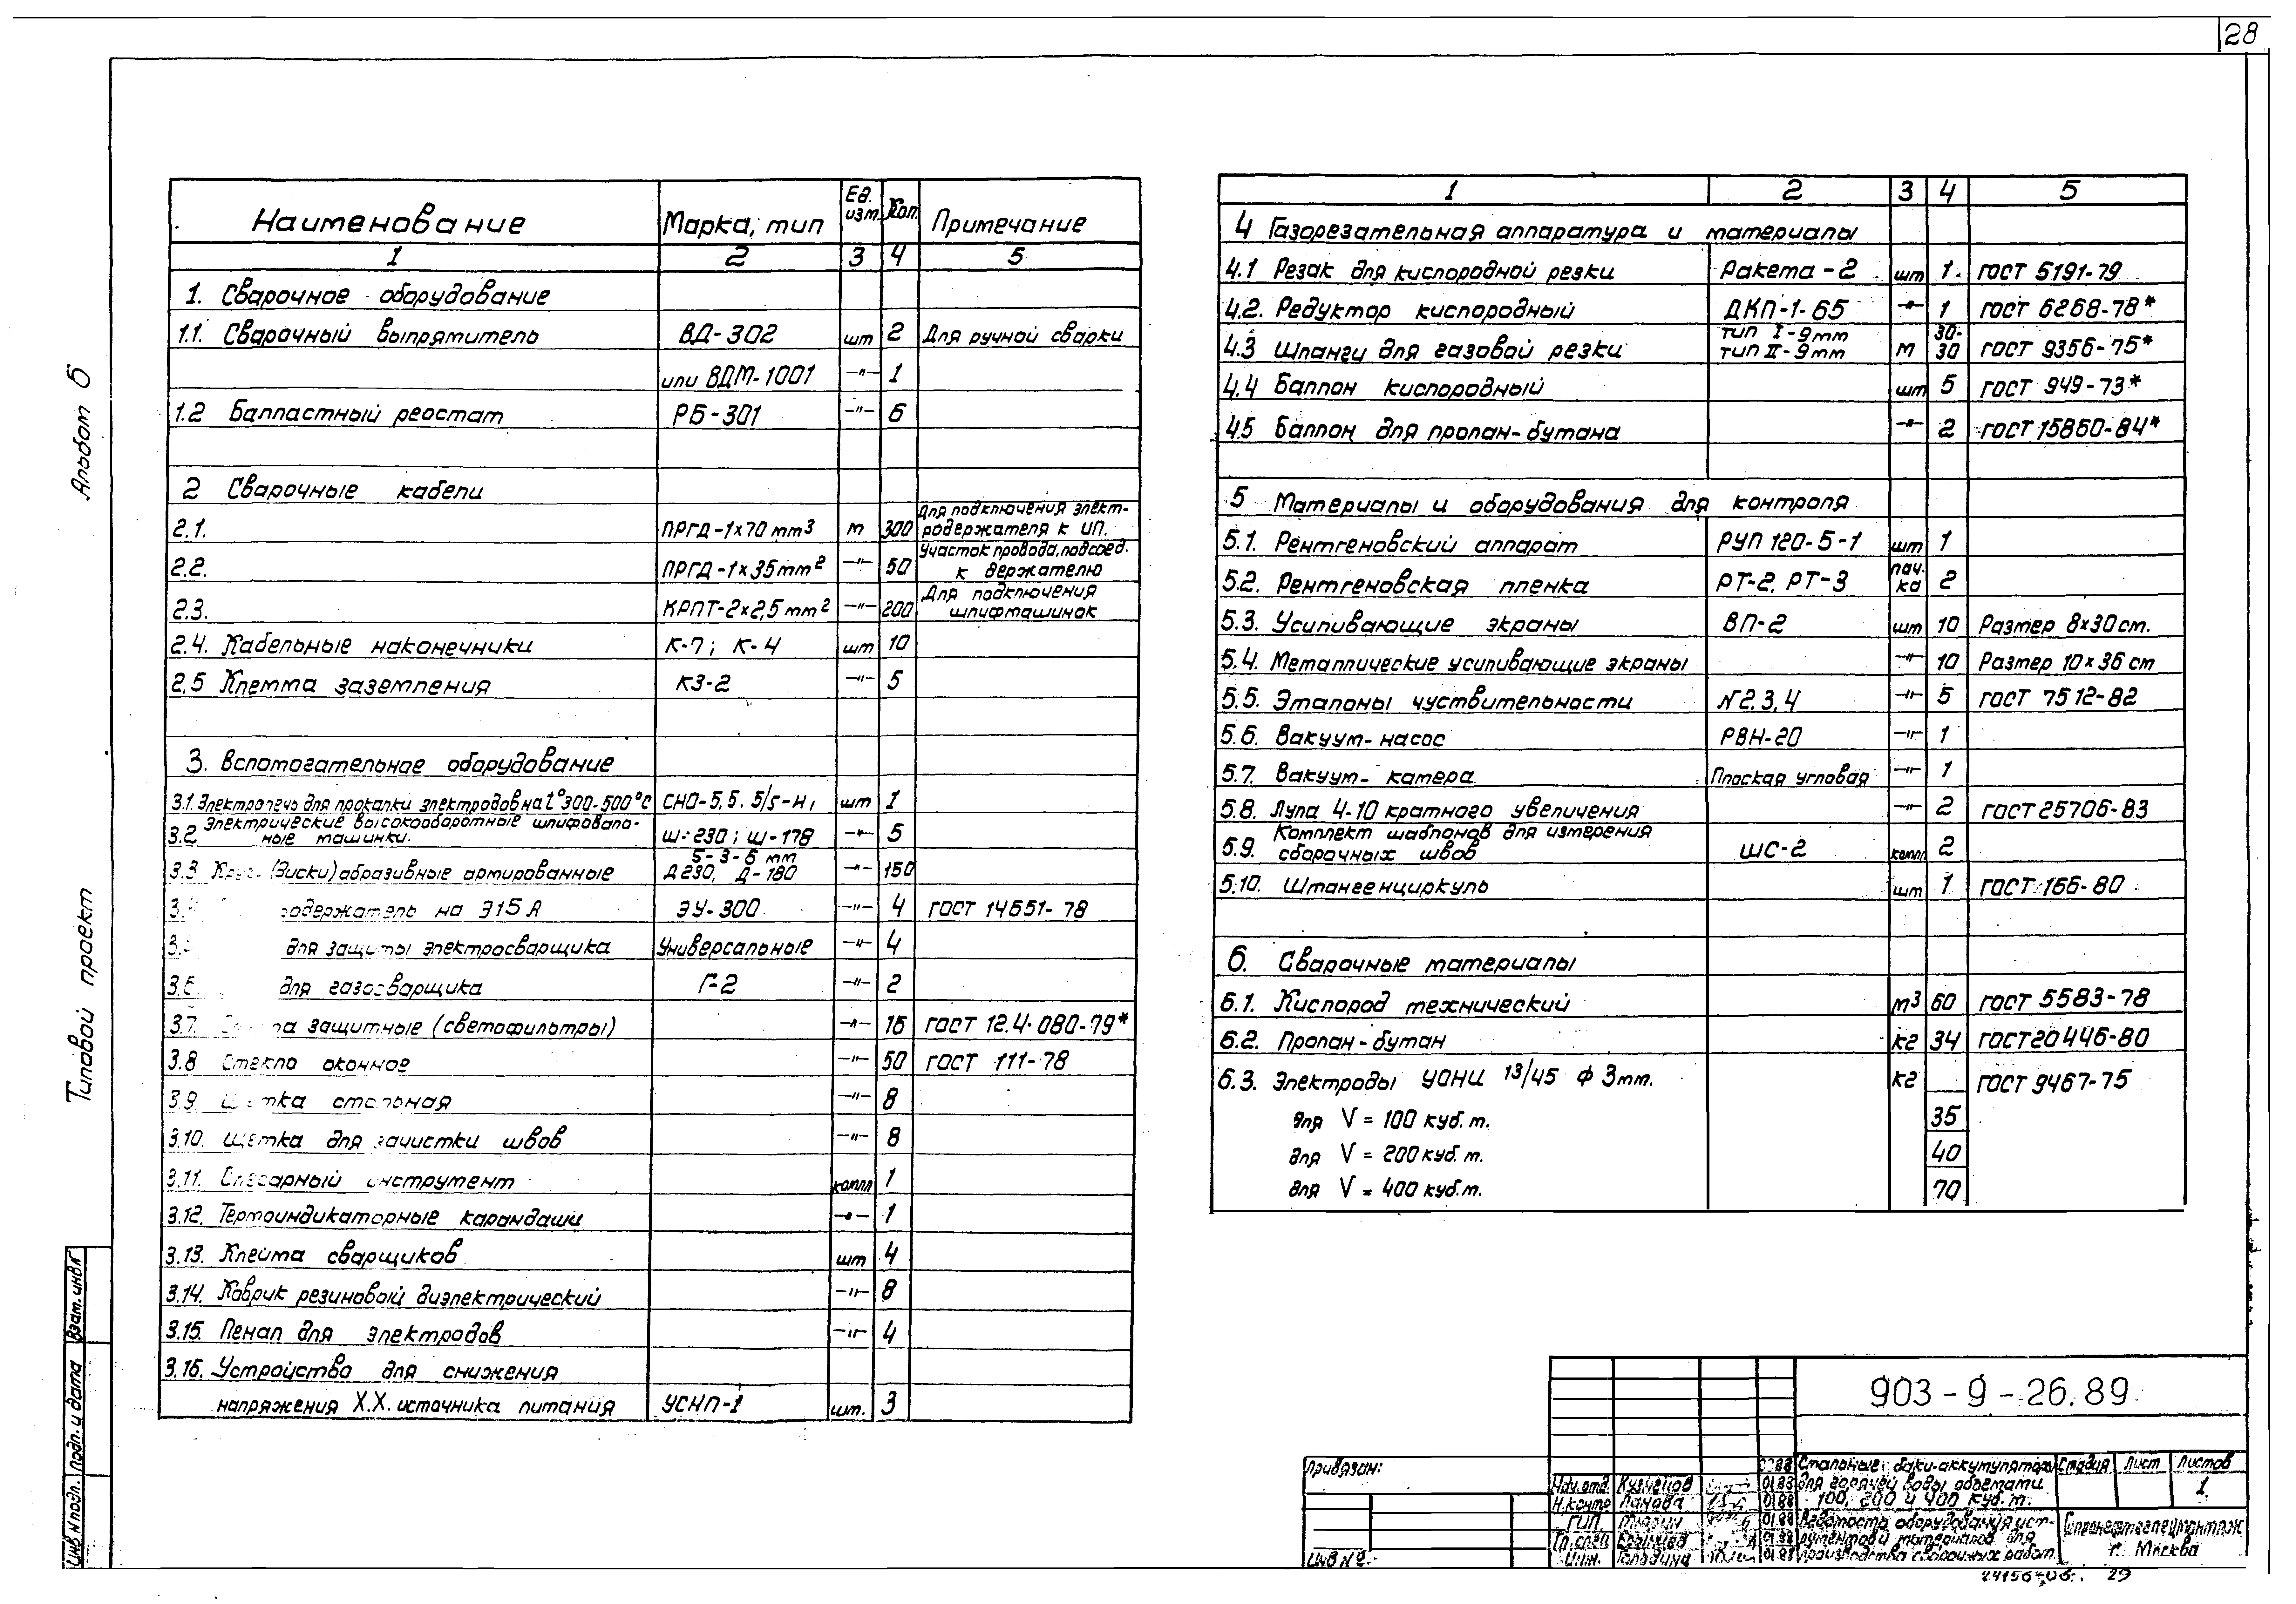 28
Альбом 6
Типовой проект
Наименование Марка, тип Ед. изм. Кол. Примечание
1 2 3 4 5
1. Сварочное оборудование
1.1. Сварочный выпрямитель ВД-302 шт 2 Для ручной сварки
или ВДМ-1001 –"– 1
1.2 Балластный реостат РБ-301 –"– 6
2 Сварочные кабели
2.1. ПРГД-1×70 mm³ м 300 Для подключения элект-
родержателя к ИП.
2.2. ПРГД-1×35 mm² –"– 50 Участок провода, подсоед.
к держателю
2.3. КРПТ-2×2,5 mm² –"– 200 Для подключения
шлифмашинок
2.4. Кабельные наконечники К-7; К-4 шт 10
2.5 Клемма заземления КЗ-2 –"– 5
3. Вспомогательное оборудование
3.1. Электропечь для прокалки электродов на t° 300-500°С СНО-5,5. 5/5-И1 шт 1
3.2 Электрические высокооборотные шлифоваль-
ные машинки. Ш-230; Ш-178 –"– 5
3.3 (диски) абразивные армированные 5-3-6 mm
Д230, Д-180 –"– 150
3. одержатель на 315 А ЭУ-300 –"– 4 ГОСТ 14651-78
3. для защиты электросварщика Универсальные –"– 4
3.6 для газосварщика Г-2 –"– 2
3.7. защитные (светофильтры) –"– 16 ГОСТ 12.4.080-79*
3.8 Стекло оконное –"– 50 ГОСТ 111-78
3.9 Щетка стальная –"– 8
3.10. Щетка для зачистки швов –"– 8
3.11. Слесарный инструмент компл 1
3.12. Термоиндикаторные карандаши –"– 1
3.13. Клейма сварщиков шт 4
3.14. Коврик резиновый диэлектрический –"– 8
3.15. Пенал для электродов –"– 4
3.16. Устройство для снижения
напряжения Х.Х. источника питания УСНП-1 шт. 3
1 2 3 4 5
4 Газорезательная аппаратура и материалы
4.1 Резак для кислородной резки Ракета-2 шт 1. ГОСТ 5191-79
4.2. Редуктор кислородный ДКП-1-65 –"– 1 ГОСТ 6268-78*
4.3 Шланги для газовой резки тип I-9mm
тип II-9mm м 30-
30 ГОСТ 9356-75*
4.4 Баллон кислородный шт 5 ГОСТ 949-73*
4.5 Баллон для пропан-бутана –"– 2 ГОСТ 15860-84*
5 Материалы и оборудования для контроля
5.1. Рентгеновский аппарат РУП 120-5-1 шт 1
5.2. Рентгеновская пленка РТ-2, РТ-3 пач.
ка 2
5.3. Усиливающие экраны ВП-2 шт 10 Размер 8×30 cm.
5.4. Металлические усиливающие экраны –"– 10 Размер 10×36 cm
5.5. Эталоны чуствительности №2,3,4 –"– 5 ГОСТ 7512-82
5.6. Вакуум-насос РВН-20 –"– 1
5.7. Вакуум-камера Плоская угловая –"– 1
5.8. Лупа 4-10 кратного увеличения –"– 2 ГОСТ 25706-83
5.9. Комплект шаблонов для измерения
сварочных швов ШС-2 компл 2
5.10. Штангенциркуль шт 1 ГОСТ 166-80
6. Сварочные материалы
6.1. Кислород технический м³ 60 ГОСТ 5583-78
6.2. Пропан-бутан кг 34 ГОСТ 20446-80
6.3. Электроды УОНИ 13/45 Ф 3mm. кг ГОСТ 9467-75
для V = 100 куб. м. 35
для V = 200 куб. м. 40
для V = 400 куб. м. 70
Взам. инв №
Подп. и дата
Инв № подл.
903-9-26.89
Привязан:
Инв №
Нач. отд. Кузнецов 01.88
Н. контр Панова 01.88
ГИП 01.88
Гл. спец 01.88
Инж. Голодина 01.88
Стальные баки-аккумуляторы
для горячей воды объемами
100, 200 и 400 куб. м.
Стадия Лист Листов
1
Ведомость оборудования, инс-
рументов и материалов для
производства сварочных работ
Гипронефтеспецмонтаж
г. Москва
24156-06 29